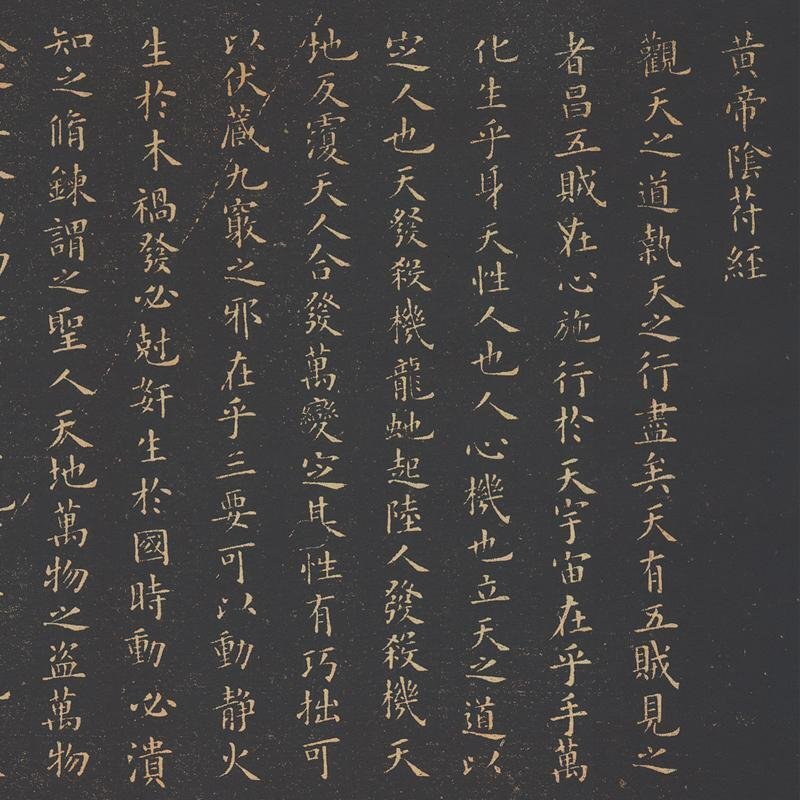 黃帝陰苻經
觀天之道執天之行盡矣天有五賊見之
者昌五賊在心施行於天宇宙在乎手萬
化生乎身天性人也人心機也立天之道以
㝎人也天發殺機龍虵起陸人發殺機天
地反覆天人合發萬變㝎其性有巧拙可
以伏藏九竅之邪在乎三要可以動靜火
生於木禍發必尅姧生於國時動必潰
知之脩鍊謂之聖人天地萬物之盜萬物